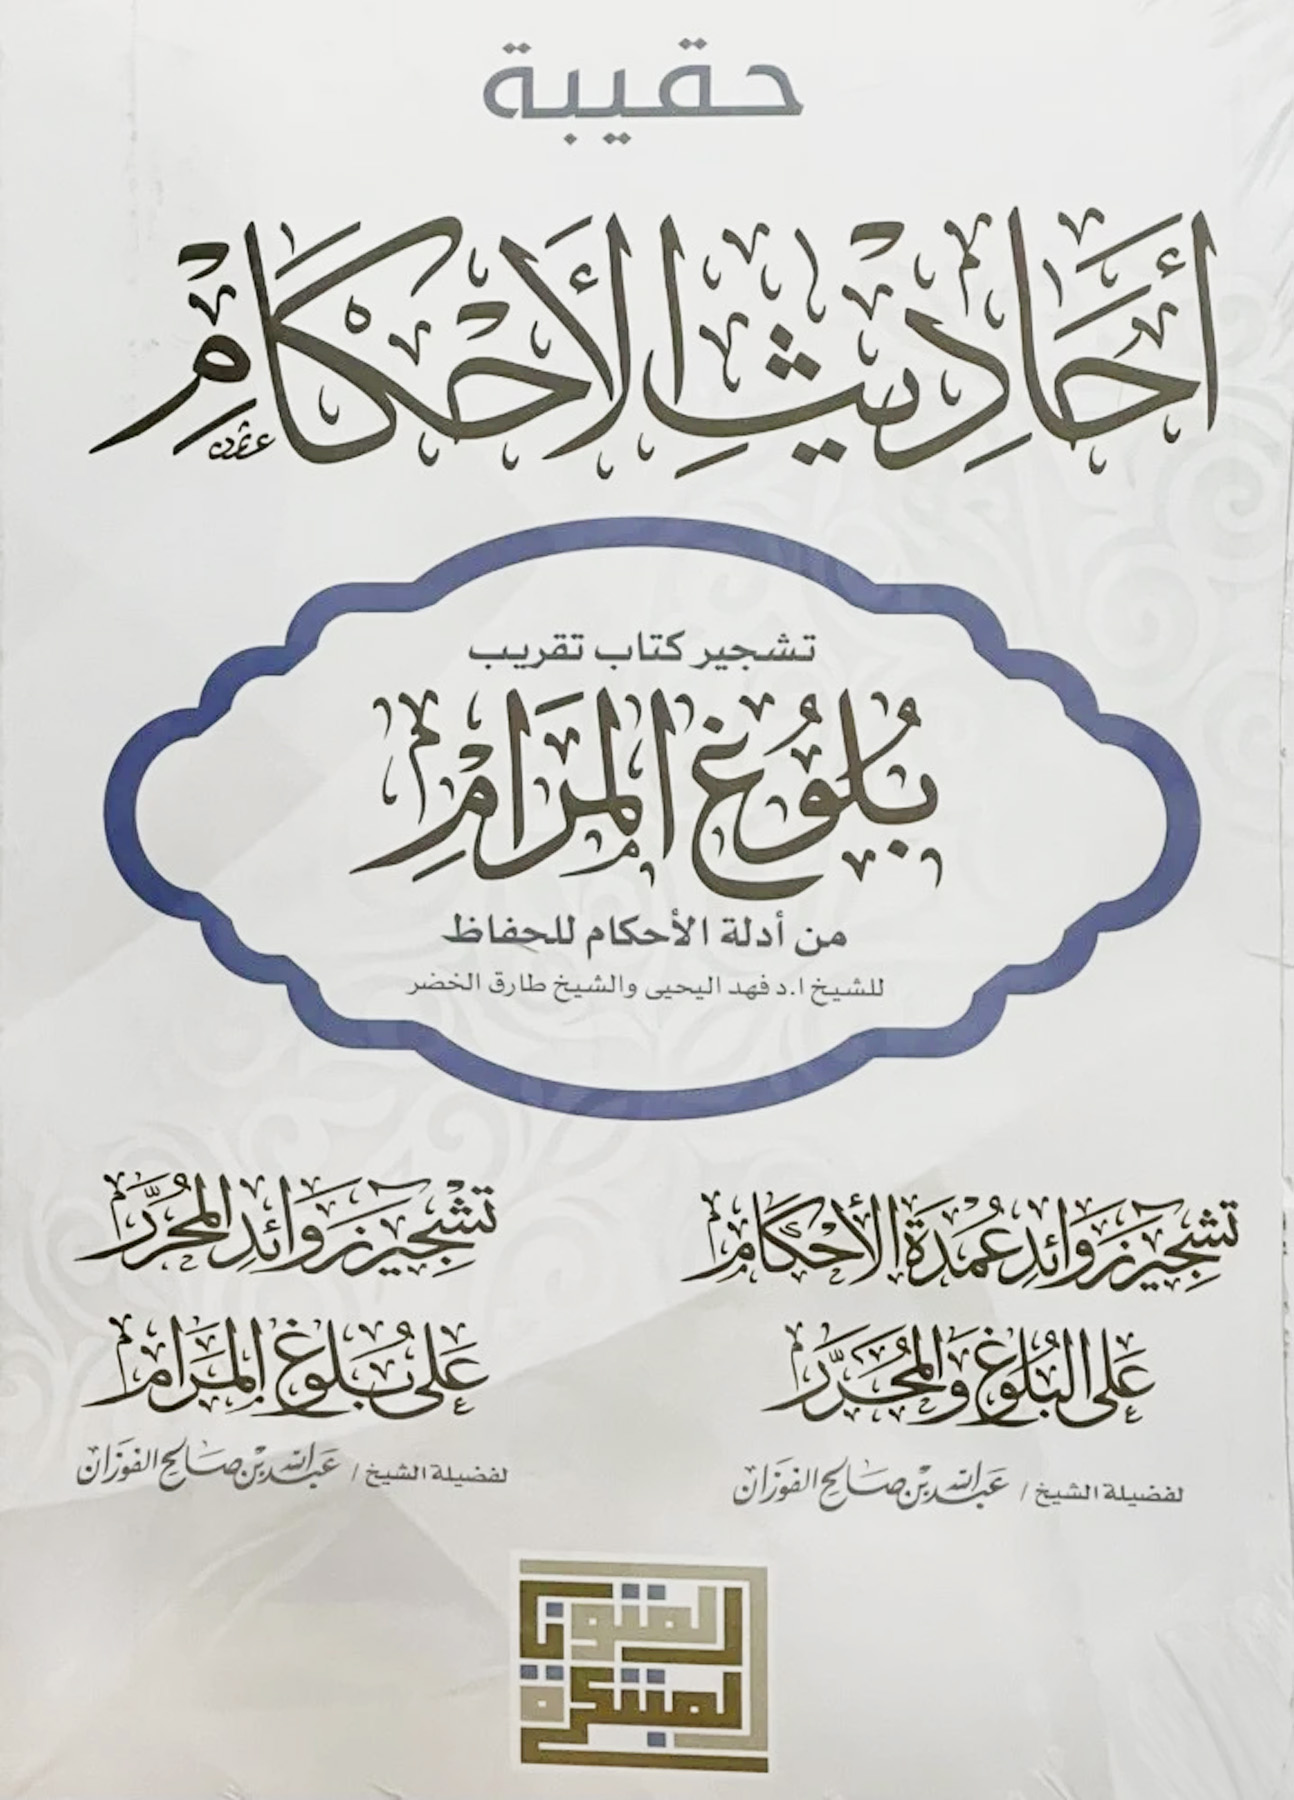 حقيبة
أَحَادِيثِ الأَحْكَامِ
تشجير كتاب تقريب
بُلُوغ المَرَامِ
من أدلة الأحكام للحفاظ
للشيخ ا.د فهد اليحيى والشيخ طارق الخضر
تشجير زوائد عُمدَة الأحكام
على البُلُوغ وَالمُحَرَّر
لفضيلة الشيخ / عبد الله بن صالح الفوزان
تشجير زوائد المُحَرَّر
على بُلُوغ المَرَام
لفضيلة الشيخ / عبد الله بن صالح الفوزان
المتون
المبتكرة